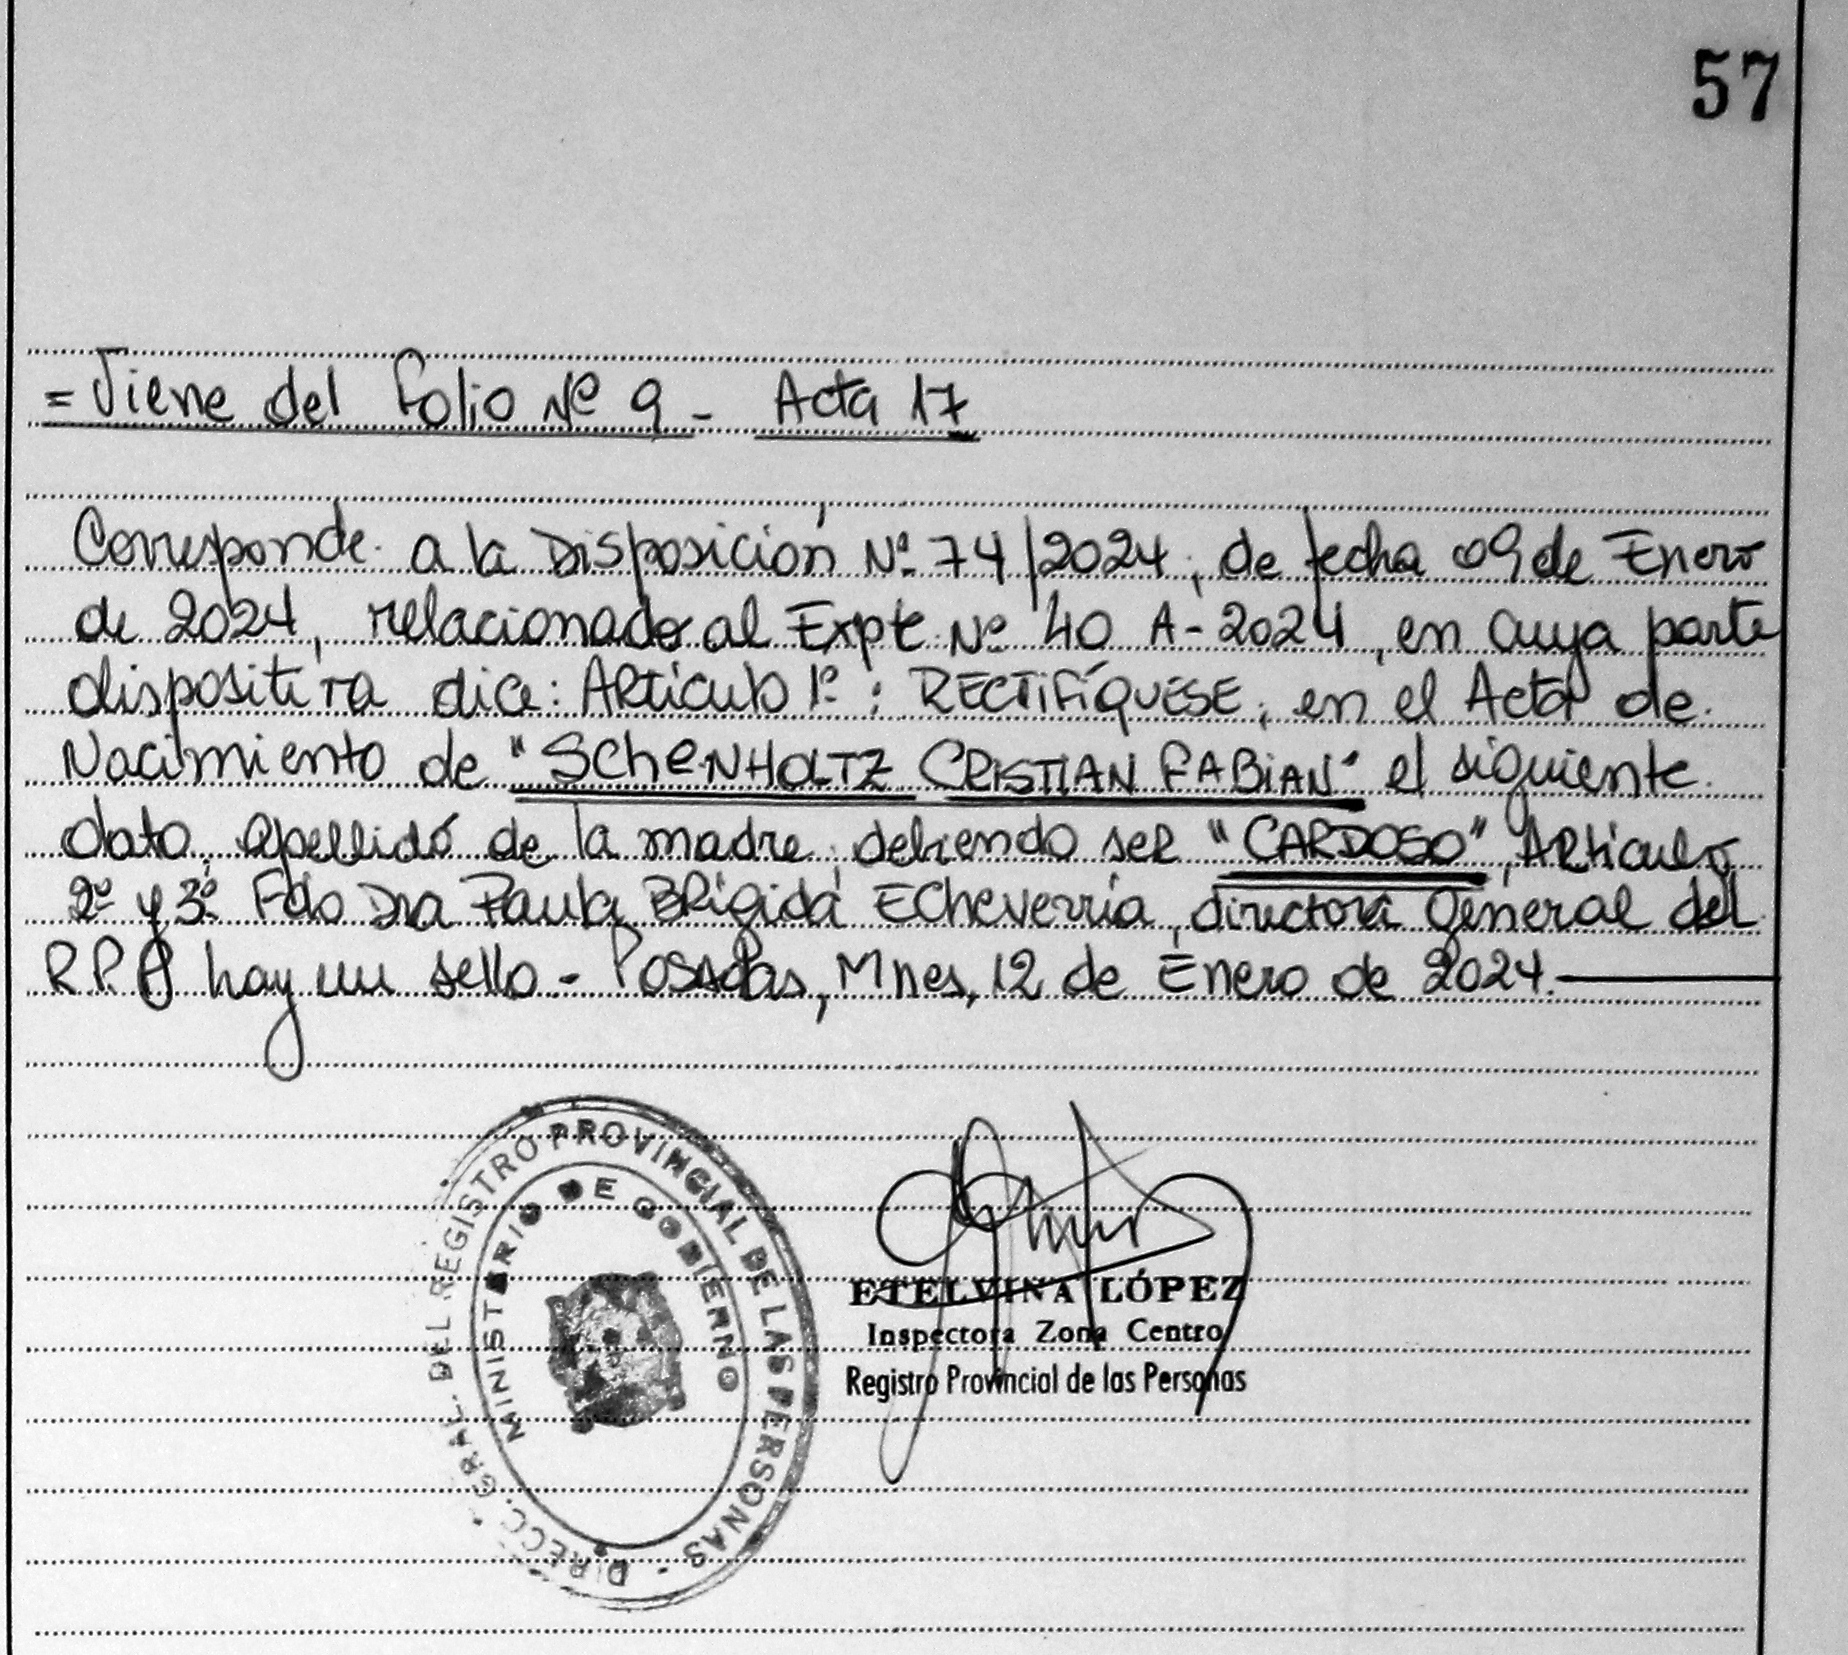 57
= Viene del Folio Nº 9 - Acta 17
Corresponde a la Disposición Nº 74/2024, de fecha 09 de Enero
de 2024, relacionado al Expte Nº 40 A-2024, en cuya parte
dispositiva dice: Artículo 1º: RECTIFÍQUESE, en el Acta de
Nacimiento de "SCHENHOLTZ CRISTIAN FABIAN" el siguiente
dato, apellido de la madre, debiendo ser "CARDOSO", Articulo
2º y 3º Fdo Dra Paula Brígida Echeverría, directora General del
R.P.P hay un sello - Posadas, Mnes, 12 de Enero de 2024.
DIRECC. GRAL. DEL REGISTRO PROVINCIAL DE LAS PERSONAS -
MINISTERIO DE GOBIERNO
ETELVINA LÓPEZ
Inspectora Zona Centro
Registro Provincial de las Personas